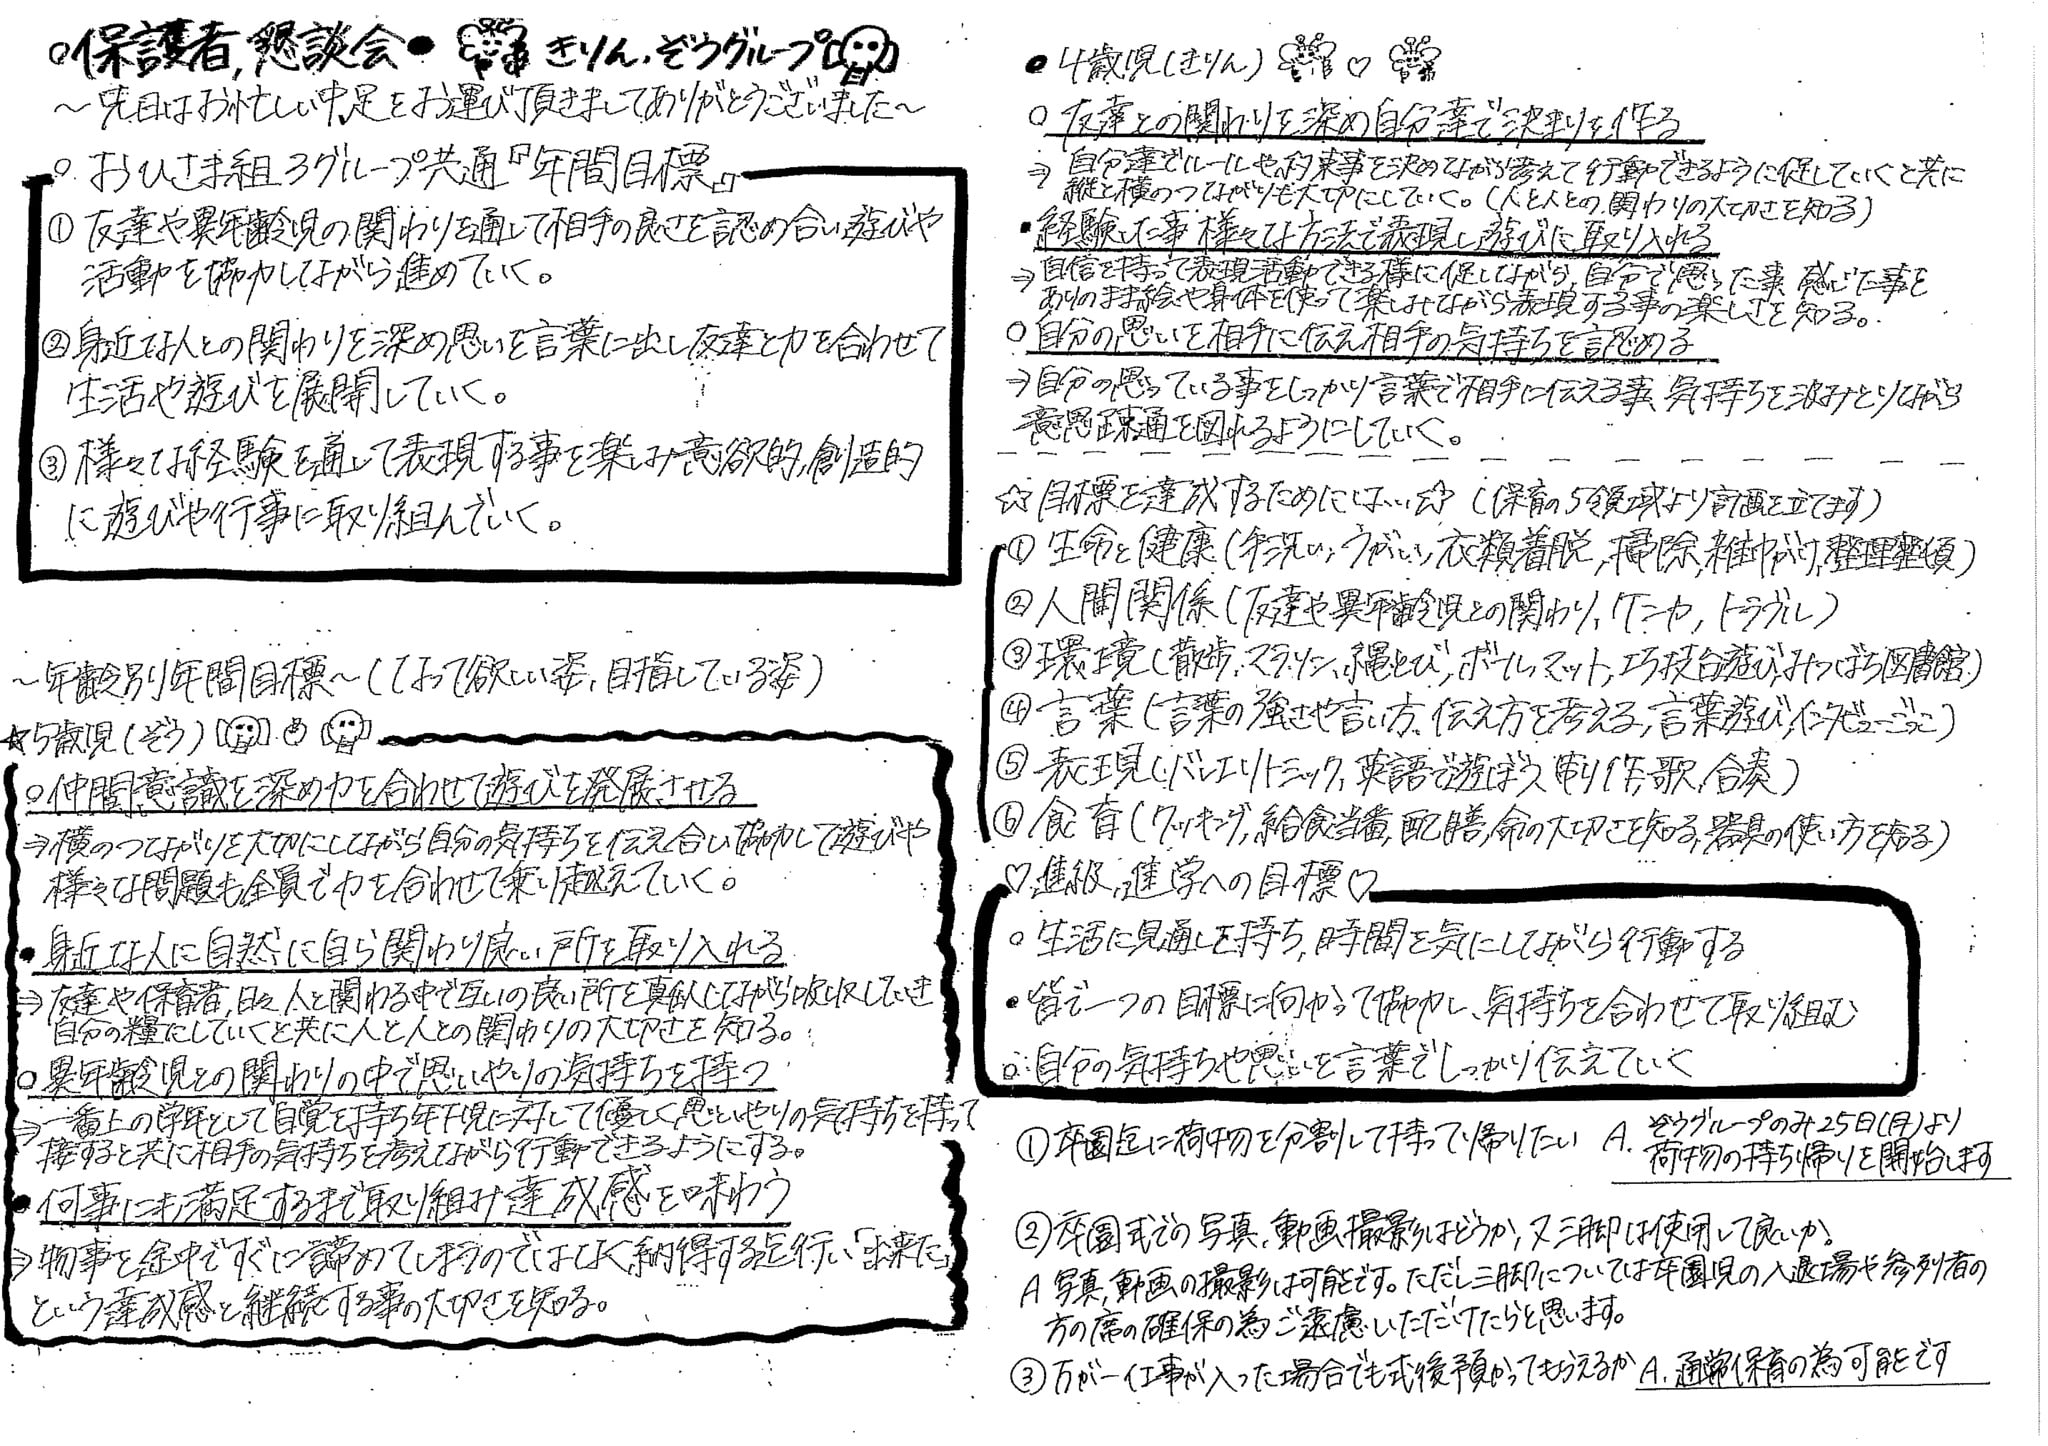 ○保護者,懇談会● きりん.ぞうグループ
～先日はお忙しい中,足をお運び頂きましてありがとうございました～
○ おひさま組3グループ共通『年間目標』
① 友達や異年齢児の関わりを通して相手の良さを認め合い遊びや
活動を協力しながら進めていく。
②身近な人との関わりを深め思いを言葉に出し友達と力を合わせて
生活や遊びを展開していく。
③様々な経験を通して表現する事を楽しみ意欲的,創造的
に遊びや行事に取り組んでいく。
～年齢別年間目標～(なって欲しい姿,目指している姿)
☆5歳児(ぞう)
○仲間意識を深め力を合わせて遊びを発展させる
⇒横のつながりを大切にしながら自分の気持ちを伝え合い協力して遊びや
様々な問題も全員で力を合わせて乗り越えていく。
●身近な人に自然に自ら関わり良い所を取り入れる
⇒友達や保育者,日々人と関わる中で互いの良い所を真似しながら吸収していき
自分の糧にしていくと共に人と人との関わりの大切さを知る。
○異年齢児との関わりの中で思いやりの気持ちを持つ
⇒一番上の学年として自覚を持ち年下児に対して優しく思いやりの気持ちを持って
接すると共に相手の気持ちを考えながら行動できるようにする。
●何事にも満足するまで取り組み達成感を味わう
⇒物事を途中ですぐに諦めてしまうのではなく納得する迄行い「出来た」
という達成感と継続する事の大切さを知る。
● 4歳児(きりん) ♡
○ 友達との関わりを深め自分達で決まりを作る
⇒ 自分達でルールや約束事を決めながら考えて行動できるように促していくと共に
縦と横のつながりも大切にしていく。(人と人との関わりの大切さを知る)
●経験した事様々な方法で表現し遊びに取り入れる
⇒自信を持って表現活動できる様に促しながら,自分で思った事,感じた事を
ありのまま絵や身体を使って楽しみながら表現する事の楽しさを知る。
○自分の思いを相手に伝え相手の気持ちを認める
⇒自分の思っている事をしっかり言葉で相手に伝える事、気持ちを汲みとりながら
意思疎通を図れるようにしていく。
☆目標を達成するためには…☆ (保育の5領域より計画を立てます)
① 生命と健康(手洗い,うがい,衣類着脱,掃除,雑巾がけ,整理整頓)
②人間関係(友達や異年齢児との関わり,ケンカ,トラブル)
③環境(散歩,マラソン,縄とび,ボール,マット,巧技台遊び,みつばち図書館)
④言葉(言葉の強さや言い方,伝え方を考える,言葉遊び,インタビューごっこ)
⑤表現(バレエ,リトミック,英語で遊ぼう,制作,歌,合奏)
⑥食育(クッキング,給食当番,配膳,命の大切さを知る,器具の使い方を知る)
♡進級,進学への目標♡
○ 生活に見通しを持ち,時間を気にしながら行動する
●皆で一つの目標に向かって協力し、気持ちを合わせて取り組む
○自分の気持ちや思いを言葉でしっかり伝えていく
①卒園迄に荷物を分割して持って帰りたい A. ぞうグループのみ25日(月)より
荷物の持ち帰りを開始します
②卒園式での写真,動画撮影はどうか,又三脚は使用して良いか。
A 写真,動画の撮影は可能です。ただし三脚については卒園児の入退場や参列者の
方の席の確保の為ご遠慮いただけたらと思います。
③万が一仕事が入った場合でも式後預かってもらえるか A.通常保育の為可能です